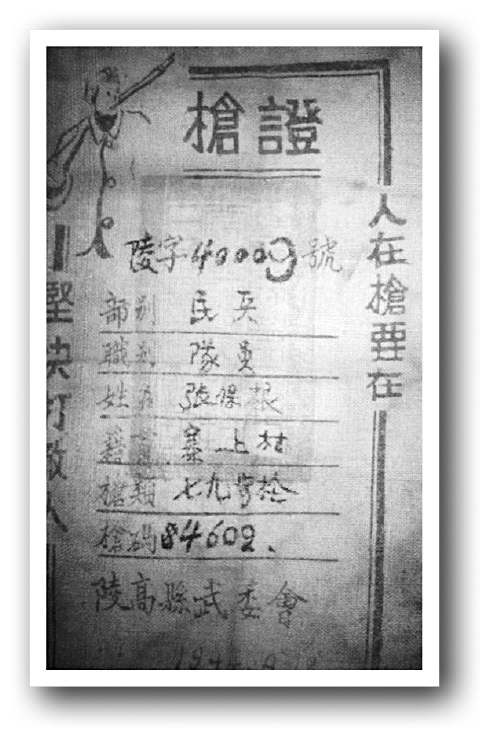 槍證
陵字40009號
部别 民兵
職别 隊員
姓名 張保根
籍貫 寨上村
槍類 七九步枪
槍碼84602.
陵高縣武委會
人在槍要在
堅決打敵人